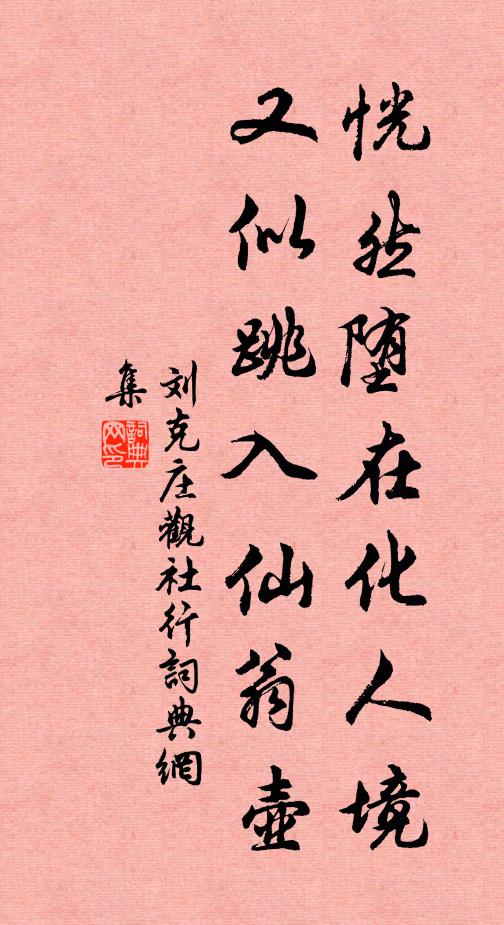 恍然堕在化人境
又似跳入仙翁壶
刘克庄觀社行詞典網
集
詞典
网印